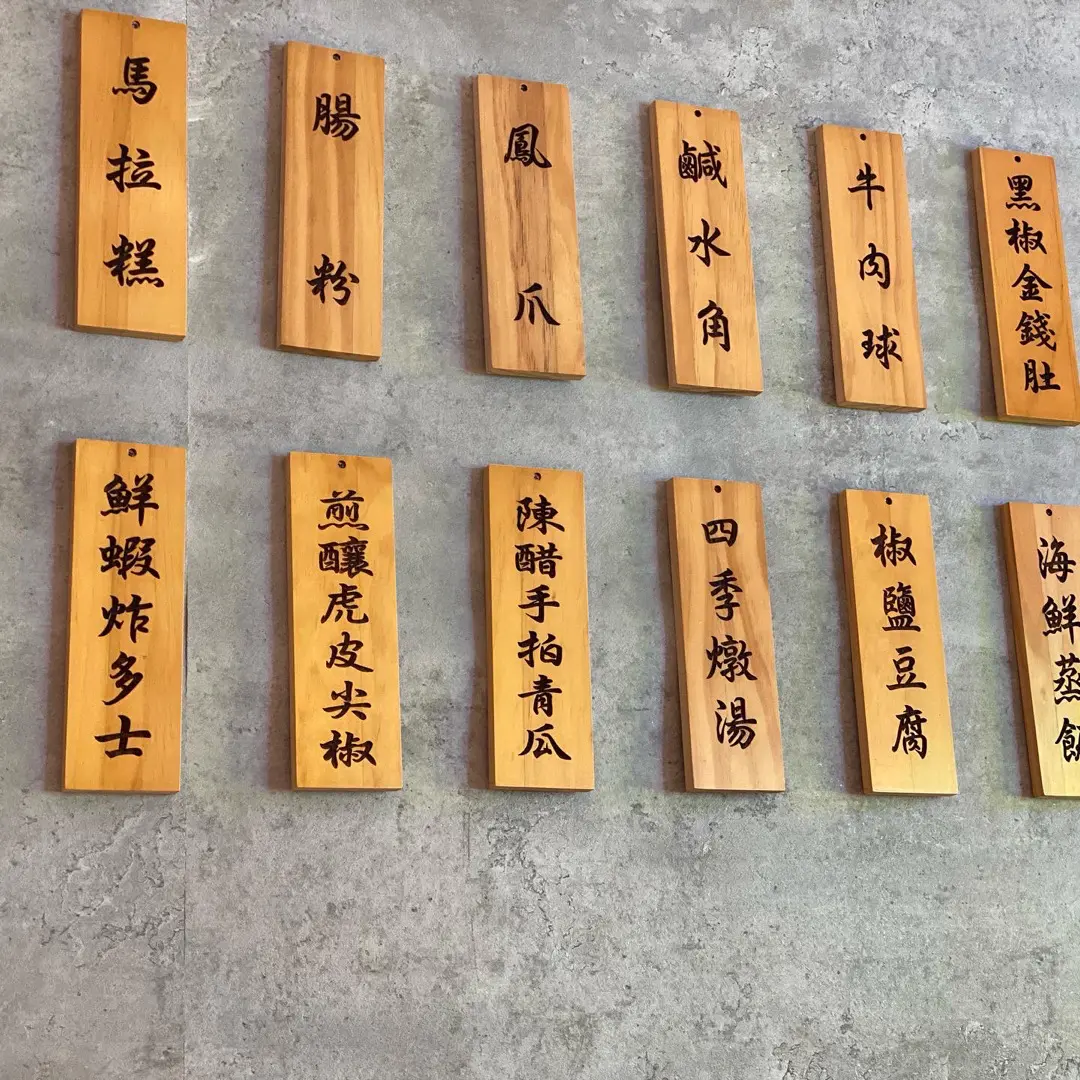 馬拉糕
腸粉
鳳爪
鹹水角
牛肉球
黑椒金錢肚
鮮蝦炸多士
煎釀虎皮尖椒
陳醋手拍青瓜
四季燉湯
椒鹽豆腐
海鮮蒸餃